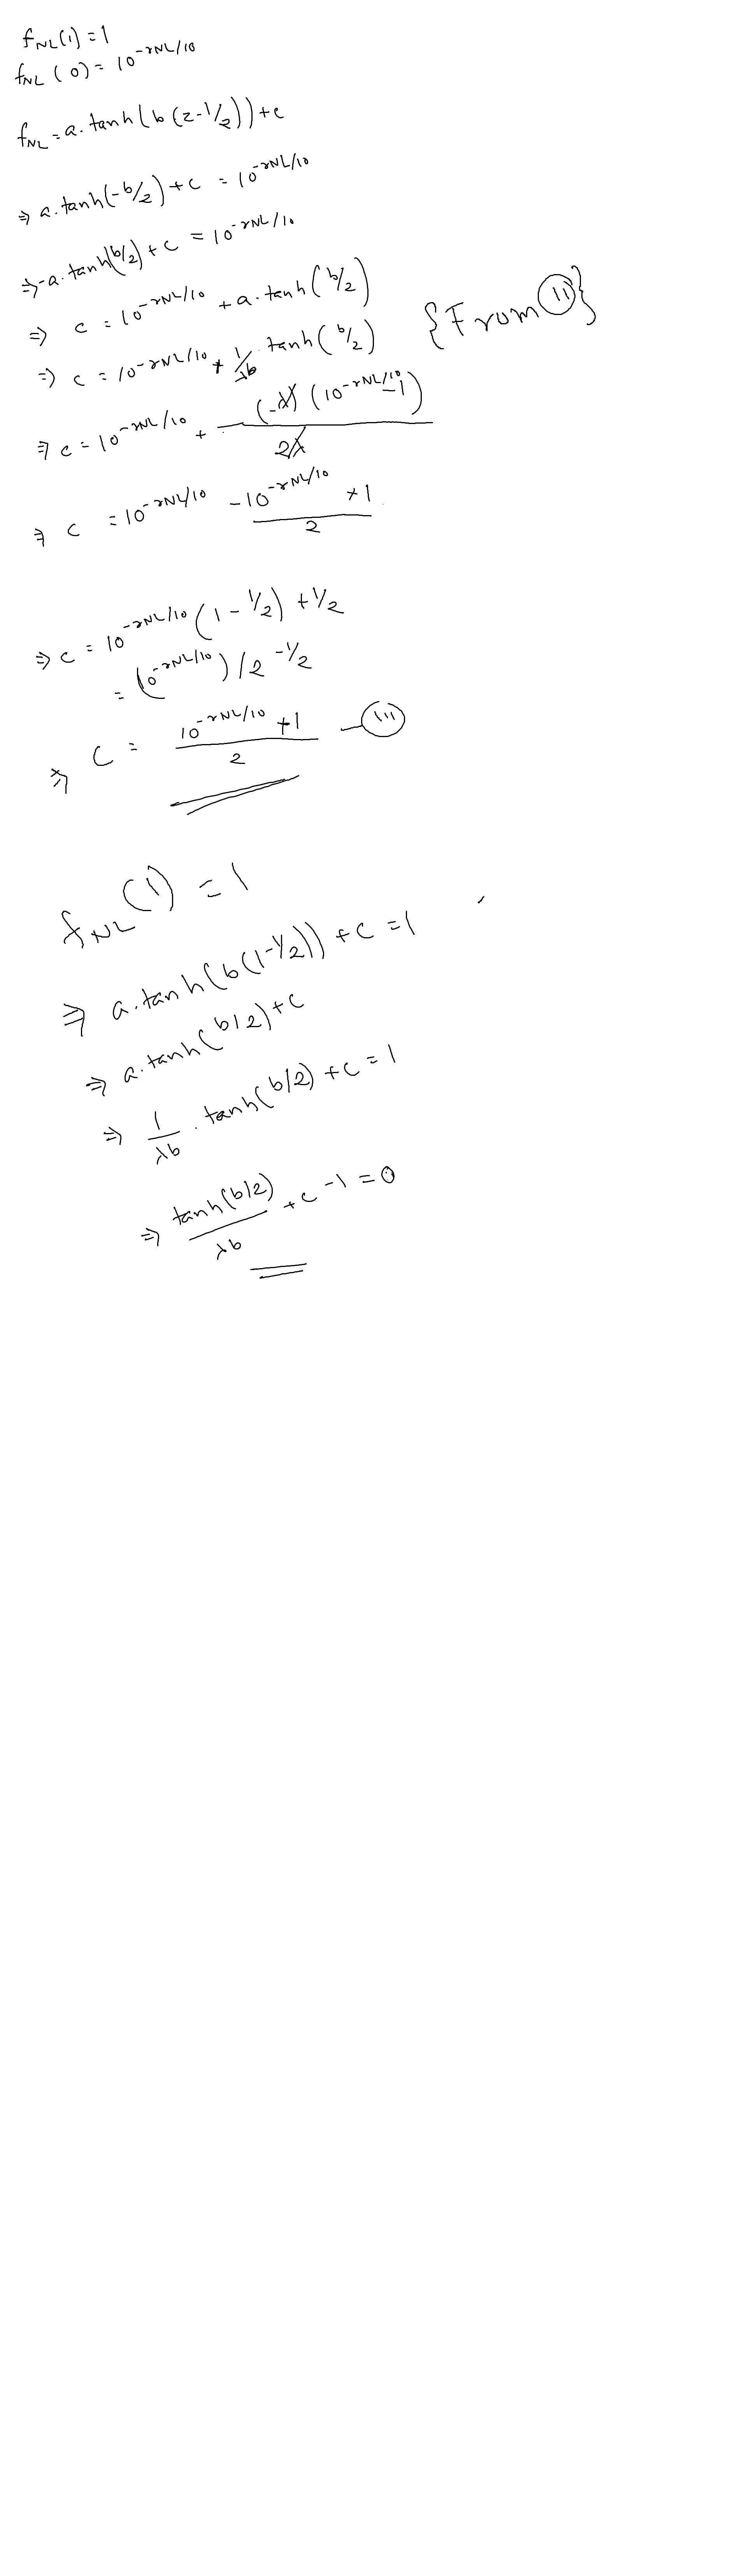 f_NL(1) = 1
f_NL(0) = 10^{-rNL/10}
f_NL = a. tanh(b(z-1/2)) + c
⇒ a. tanh(-b/2) + c = 10^{-rNL/10}
⇒ -a. tanh(b/2) + c = 10^{-rNL/10}
⇒ c = 10^{-rNL/10} + a. tanh(b/2)
⇒ c = 10^{-rNL/10} + 1/λb tanh(b/2) {From (11)}
⇒ c = 10^{-rNL/10} + (-λ)(10^{-rNL/10} - 1) / 2λ
⇒ c = 10^{-rNL/10} -10^{-rNL/10} + 1 / 2
⇒ c = 10^{-rNL/10} (1 - 1/2) + 1/2
= (10^{-rNL/10}) / 2 - 1/2
⇒ C = 10^{-rNL/10} + 1 / 2 — (111)
f_NL(1) = 1
⇒ a. tanh(b(1-1/2)) + c = 1
⇒ a. tanh(b/2) + c
⇒ 1/λb . tanh(b/2) + c = 1
⇒ tanh(b/2) / λb + c - 1 = 0